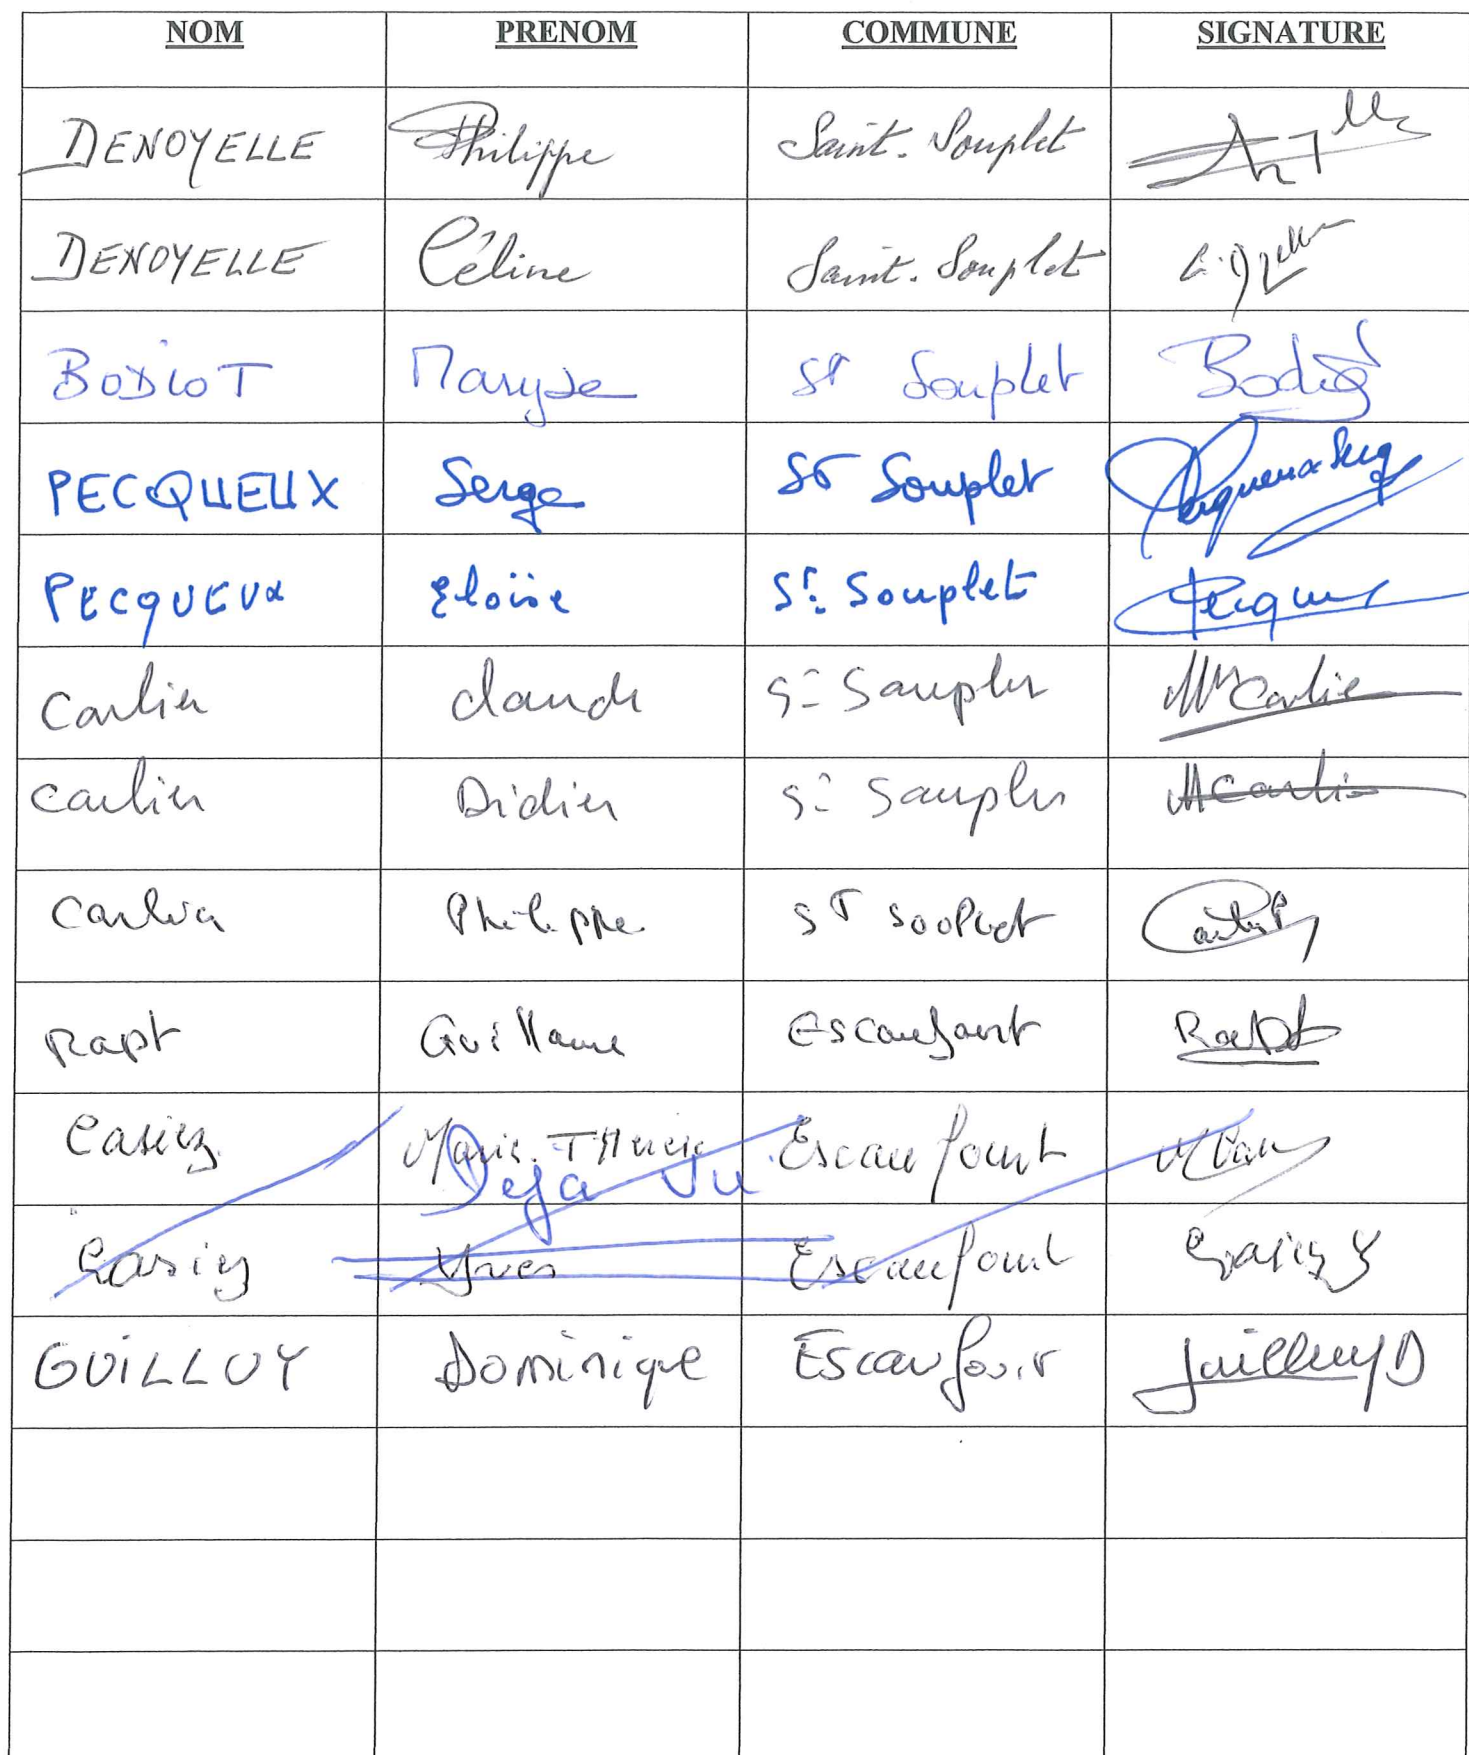 NOM PRENOM COMMUNE SIGNATURE
DENOYELLE Philippe Saint-Souplet
DENOYELLE Céline Saint-Souplet
BODIOT Maryse St Souplet Bodiot
PECQUEUX Serge St Souplet Pecqueux Serge
PECQUEUX Eloïse St Souplet
Carlier Claude St Souplet Mme Carlier
Carlier Didier St Souplet M Carlier
Carlier Philippe ST SOUPLET
Rapt Guillaume Escaufourt Rapt
Casiez Marie-Thérèse Escaufourt
Déjà Vu
Casiez Yves Escaufourt Casiez Y
GUILLUY Dominique Escaufourt Guilluy D